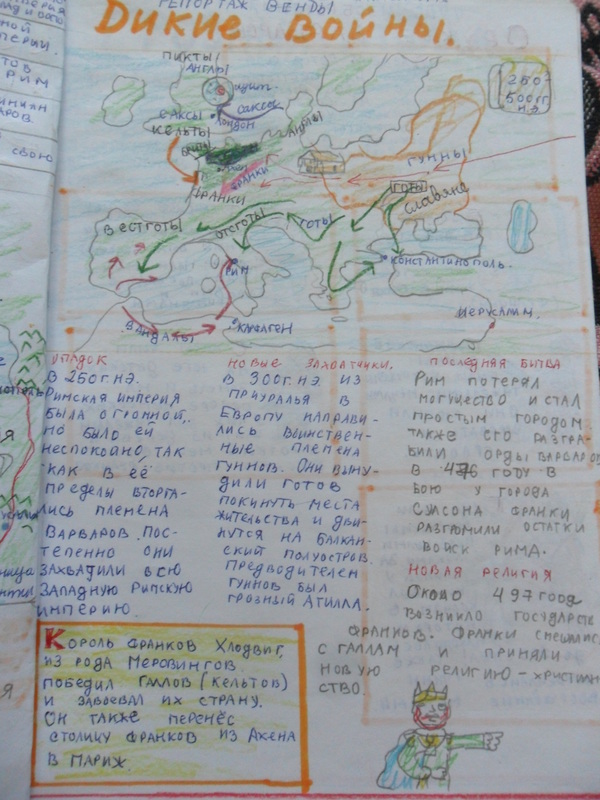 РЕПОРТАЖ ВЕНДЫ
ДИКИЕ ВОЙНЫ.
250-
500 ГГ
Н.Э
ПИКТЫ
АНГЛЫ
САКСЫ
САКСЫ
ЛОНДОН
АНГЛЫ
КЕЛЬТЫ
ФРАНКИ
ФРАНКИ
ГУННЫ
ГОТЫ
СЛАВЯНЕ
ВЕСТГОТЫ
ОСТГОТЫ
ГОТЫ
РИМ
КОНСТАНТИНОПОЛЬ.
ВАНДАЛЫ
КАРФАГЕН
ИЕРУСАЛИМ.
УПАДОК
В 250Г.Н.Э.
РИМСКАЯ ИМПЕРИЯ
БЫЛА ОГРОМНОЙ,
НО БЫЛО ЕЙ
НЕСПОКОЙНО, ТАК
КАК В ЕЁ
ПРЕДЕЛЫ ВТОРГА-
ЛИСЬ ПЛЕМЁНА
ВАРВАРОВ. ПОС-
ТЕПЕННО ОНИ
ЗАХВАТИЛИ ВСЮ
ЗАПАДНУЮ РИМСКУЮ
ИМПЕРИЮ.
НОВЫЕ ЗАХВАТЧИКИ.
В 300Г.Н.Э. ИЗ
ПРИУРАЛЬЯ В
ЕВРОПУ НАПРАВИ-
ЛИСЬ ВОИНСТВЕН-
НЫЕ ПЛЕМЕНА
ГУННОВ. ОНИ ВЫНУ-
ДИЛИ ГОТОВ
ПОКИНУТЬ МЕСТА
ЖИТЕЛЬСТВА И ДВИ-
НУТСЯ НА БАЛКАН-
СКИЙ ПОЛУОСТРОВ.
ПРЕДВОДИТЕЛЕМ
ГУННОВ БЫЛ
ГРОЗНЫЙ АТИЛЛА.
ПОСЛЕДНЯЯ БИТВА
РИМ ПОТЕРЯЛ
МОГУЩЕСТВО И СТАЛ
ПРОСТЫМ ГОРОДОМ.
ТАКЖЕ ЕГО РАЗГРА-
БИЛИ ОРДЫ ВАРВАРОВ
В 476 ГОДУ В
БОЮ У ГОРОДА
СУАСОНА ФРАНКИ
РАЗГРОМИЛИ ОСТАТКИ
ВОЙСК РИМА.
НОВАЯ РЕЛИГИЯ
ОКОЛО 497 ГОДА
ВОЗНИКЛО ГОСУДАРСТВО
ФРАНКОВ. ФРАНКИ СМЕШАЛИСЬ
С ГАЛЛАМИ И ПРИНЯЛИ
НОВУЮ РЕЛИГИЮ - ХРИСТИАН
СТВО.
КОРОЛЬ ФРАНКОВ ХЛОДВИГ
ИЗ РОДА МЕРОВИНГОВ
ПОБЕДИЛ ГАЛЛОВ (КЕЛЬТОВ)
И ЗАВОЕВАЛ ИХ СТРАНУ.
ОН ТАКЖЕ ПЕРЕНЁС
СТОЛИЦУ ФРАНКОВ ИЗ АХЕНА
В ПАРИЖ.